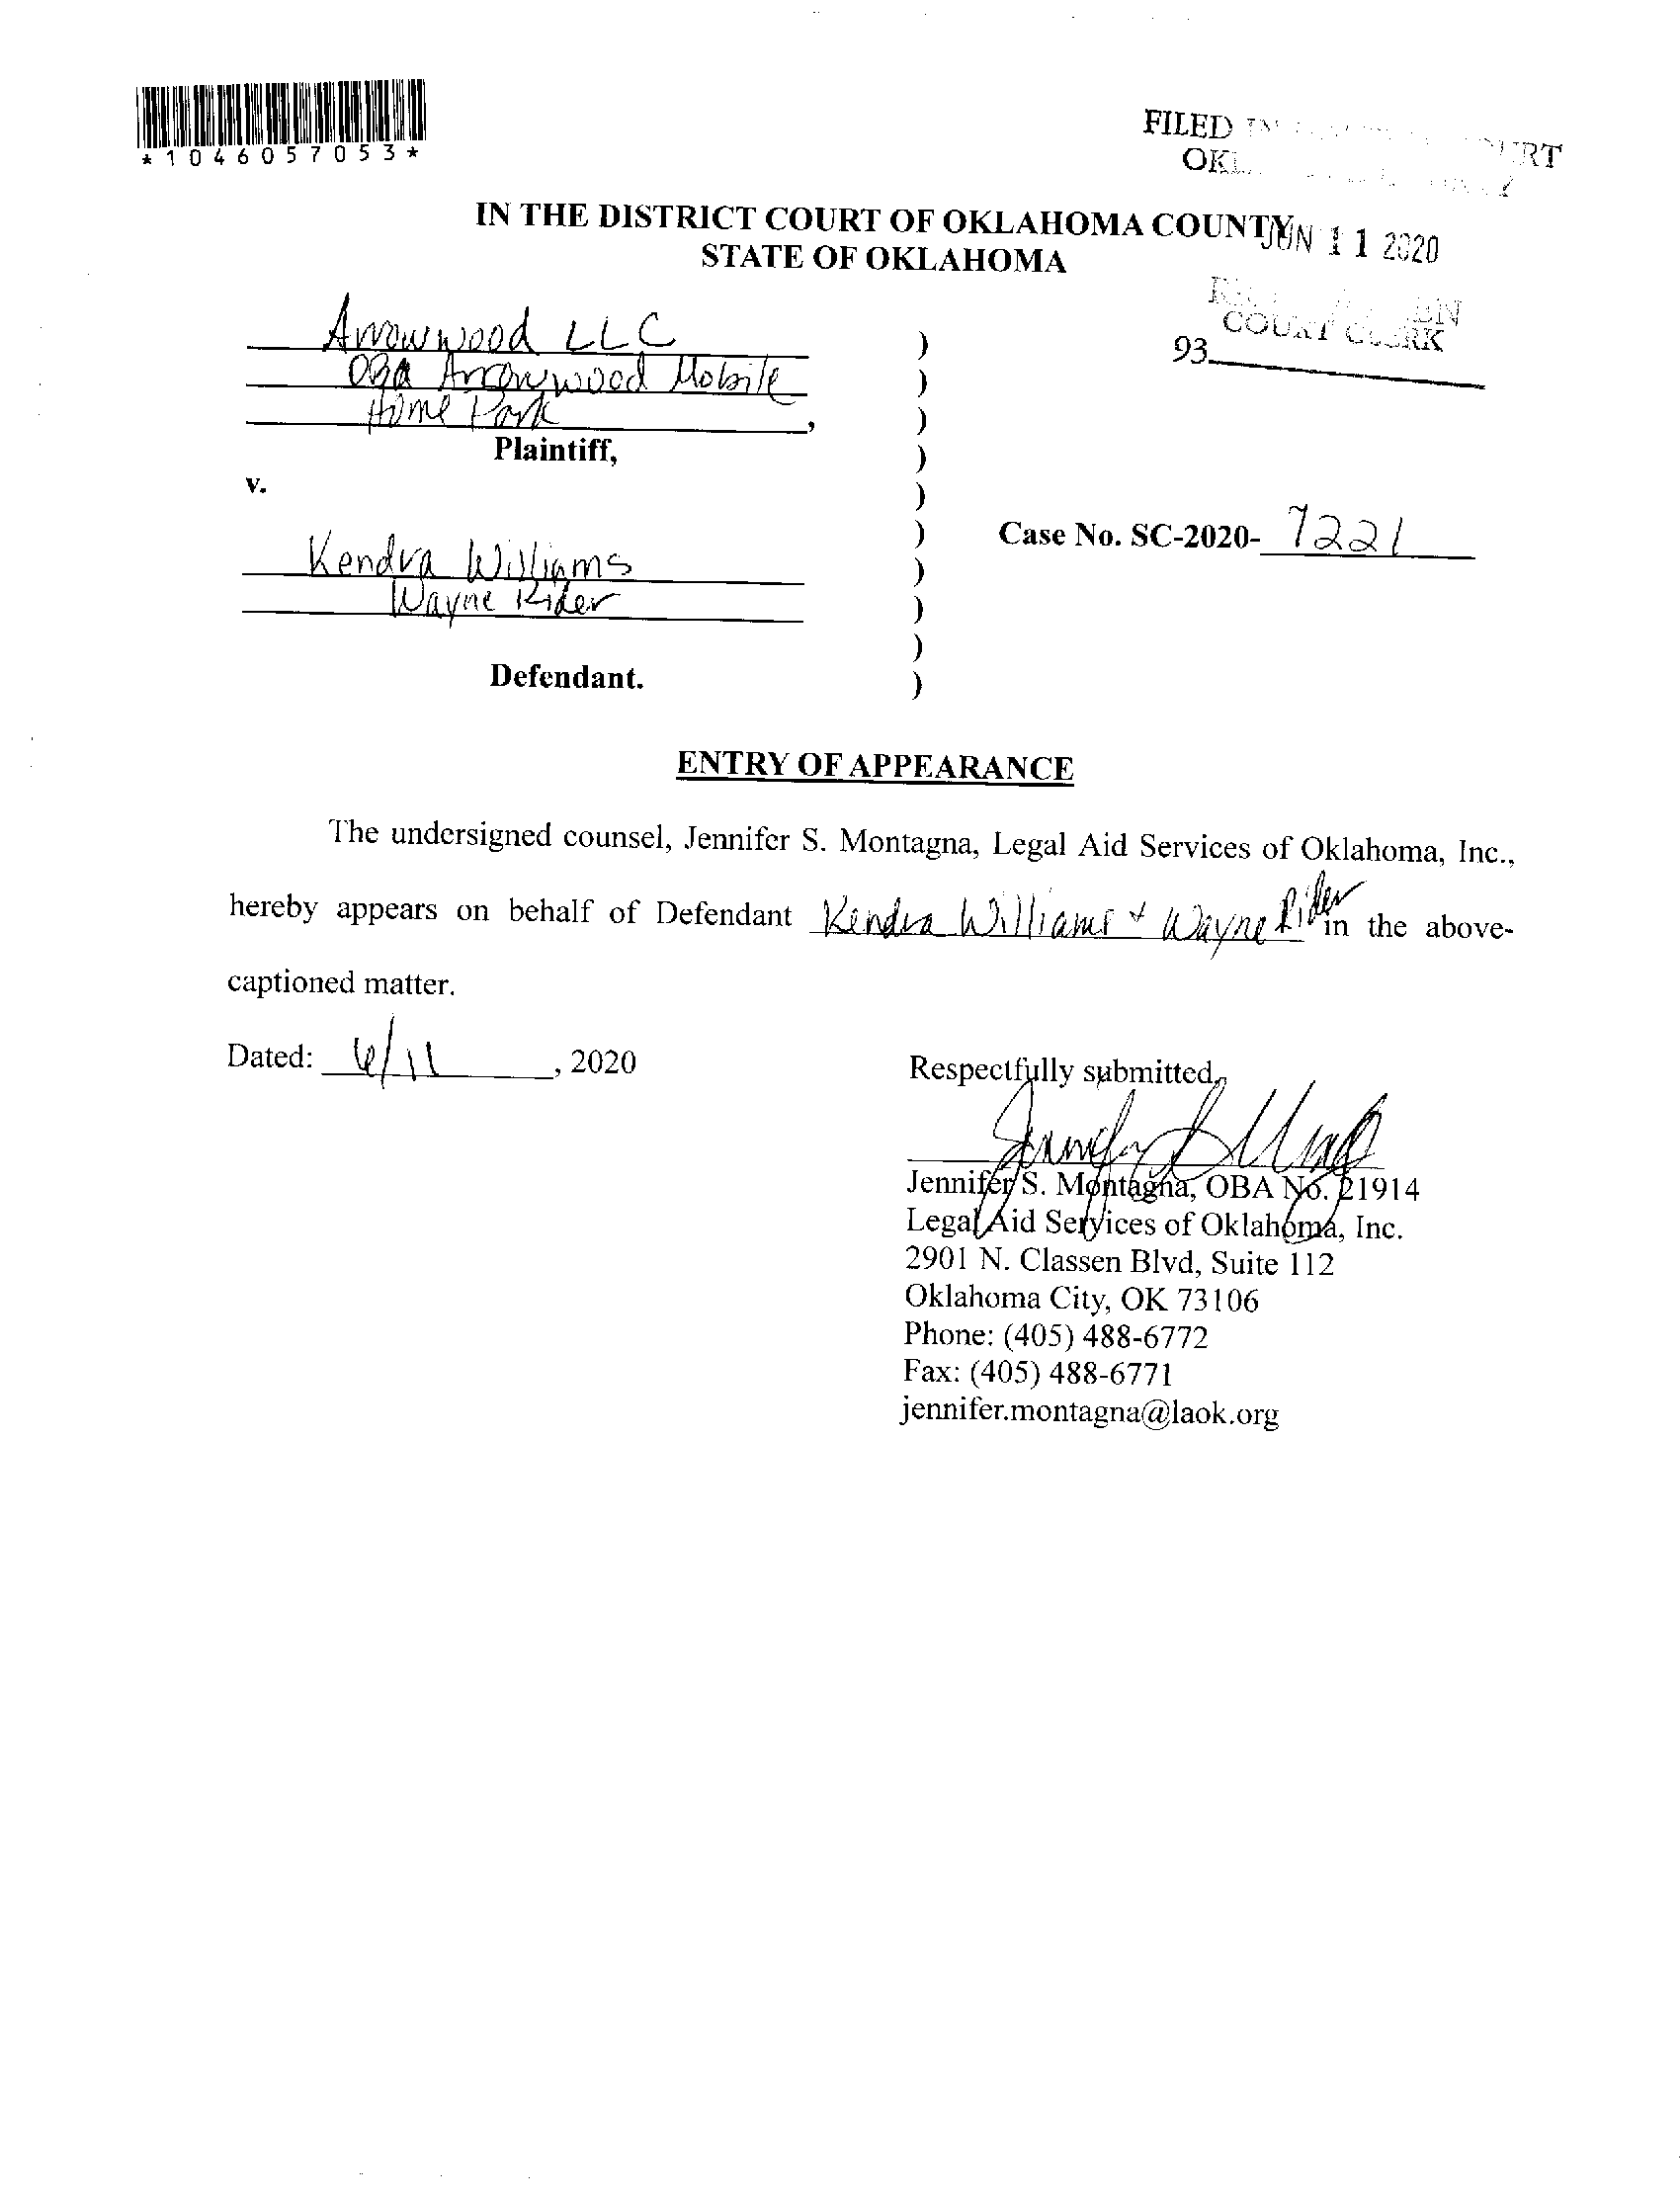 *1046057053*
FILED
OURT
JUN 11 2020
COURT CLERK
93
IN THE DISTRICT COURT OF OKLAHOMA COUNTY
STATE OF OKLAHOMA
Arrowwood LLC )
DBA Arrowwood Mobile )
Home Park , )
Plaintiff, )
v. )
) Case No. SC-2020- 7221
Kendra Williams )
Wayne Rider )
)
Defendant. )
ENTRY OF APPEARANCE
The undersigned counsel, Jennifer S. Montagna, Legal Aid Services of Oklahoma, Inc.,
hereby appears on behalf of Defendant Kendra Williams + Wayne Rider in the above-
captioned matter.
Dated: 6/11, 2020
Respectfully submitted,
Jennifer S. Montagna, OBA No. 21914
Legal Aid Services of Oklahoma, Inc.
2901 N. Classen Blvd, Suite 112
Oklahoma City, OK 73106
Phone: (405) 488-6772
Fax: (405) 488-6771
jennifer.montagna@laok.org